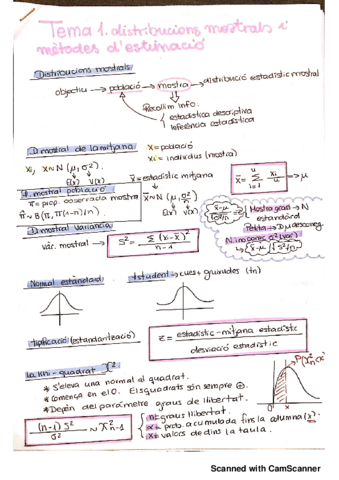 Tema 1. distribucions mostrals i
mètodes d'estimació
Distribucions mostrals
objectiu → població → mostra → distribució estadístic mostral
Recollim info:
estadística descriptiva
inferència estadística
D. mostral de la mitjana
X = població
Xi = individus (mostra)
xi, x~N (μ, σ²)
E(x) V(x)
x̄ = estadístic mitjana
x̄~N (μ, σ²/n)
E(x) V(x)
x̄ = Σ xi/n → μ
D. mostral població
π̂ = prop. observada mostra
π̂ ~ B(π, π(1-π)/n)
Mostra gran → N
estandard
Petita → D
D. mostral variància
vàr. mostral → S² = Σ(x-x̄)²/n-1
N. ino pores σ² (var)
Normal estàndard
t student → cues + gruixudes (tn)
Tipificació (estandarització)
z = estadístic - mitjana estadístic
desviació estadístic
La Khi-quadrat X²
* S'eleva una normal al quadrat.
* Comença en el 0. Els quadrats són sempre ⊕.
* Depèn del paràmetre graus de llibertat.
(n-1) S²/σ² ~ X²n-1
n = graus llibertat.
α = prob. acumulada fins la columna (x).
x = valors de dins la taula.
Scanned with CamScanner